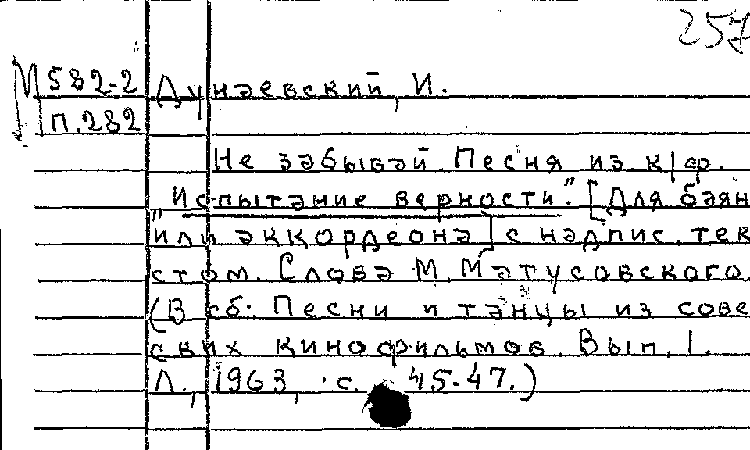 257
М 582-2 Дунаевский, И.
П.282
Не забывай Песня из к/ф.
"Испытание верности." [Для баян
или аккордеона] с надпис. тек
стом. Слова М. Матусовского.
(В сб: Песни и танцы из сове
ских кинофильмов. Вып. 1.
Л., 1963, с. 45-47.)